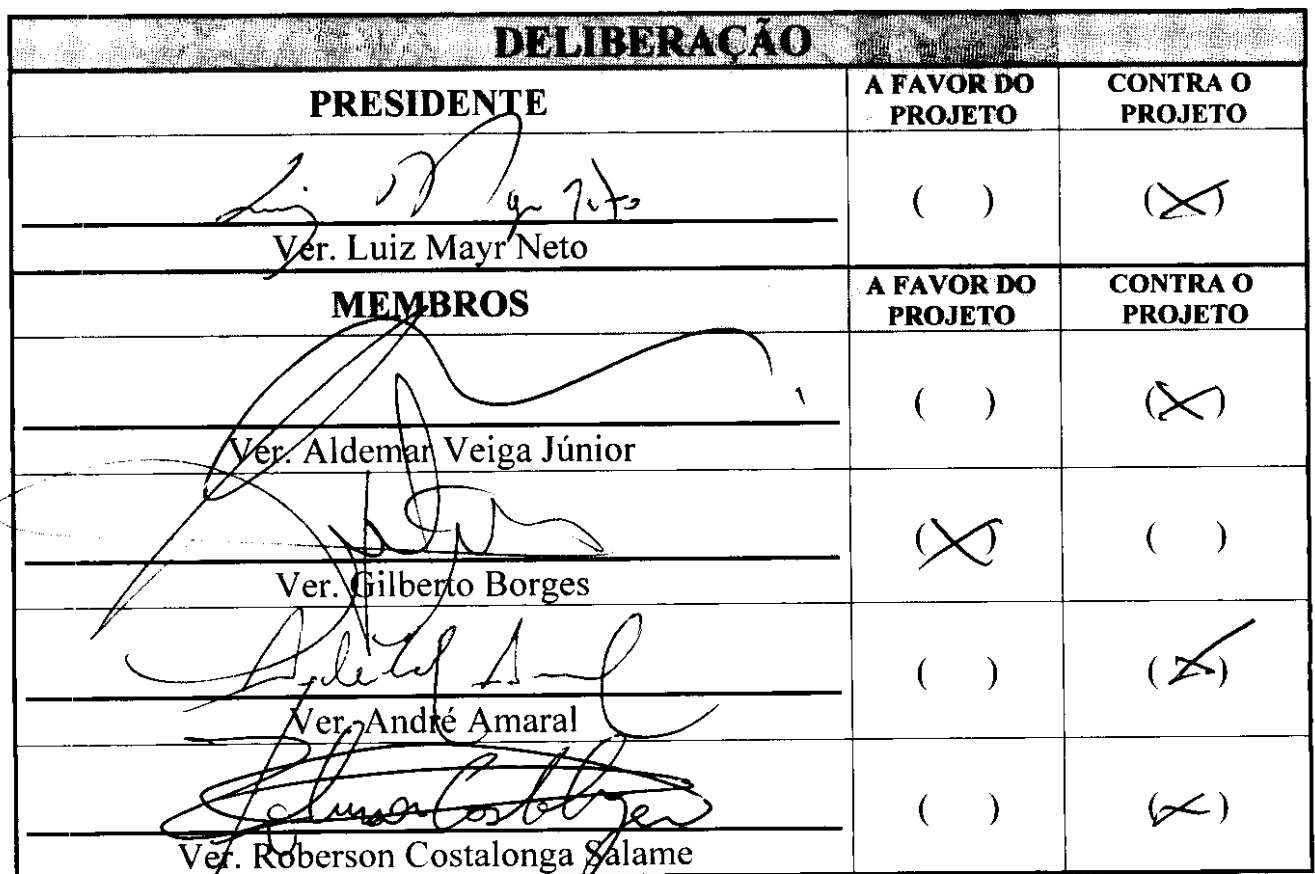 DELIBERAÇÃO
PRESIDENTE
A FAVOR DO PROJETO
CONTRA O PROJETO
Luiz Mayr Neto
( )
(X)
Ver. Luiz Mayr Neto
MEMBROS
A FAVOR DO PROJETO
CONTRA O PROJETO
( )
(X)
Ver. Aldemar Veiga Júnior
(X)
( )
Ver. Gilberto Borges
( )
(X)
Ver. André Amaral
( )
(X)
Ver. Roberson Costalonga Salame